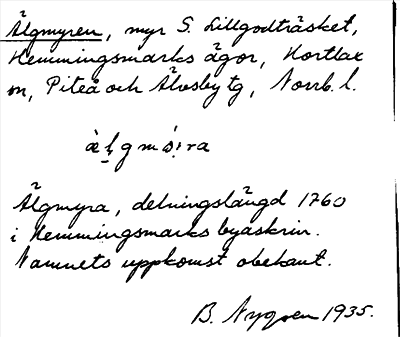 Älgmyren, myr S. Lillgodträsket,
Hemmingsmarks ägor, Hortlax
sn, Piteå och Älvsby tg, Norrb. l.
Älgmyra, delningslängd 1760
i Hemmingsmarks byaskrin.
Namnets uppkomst obekant.
B. Nygren 1935.